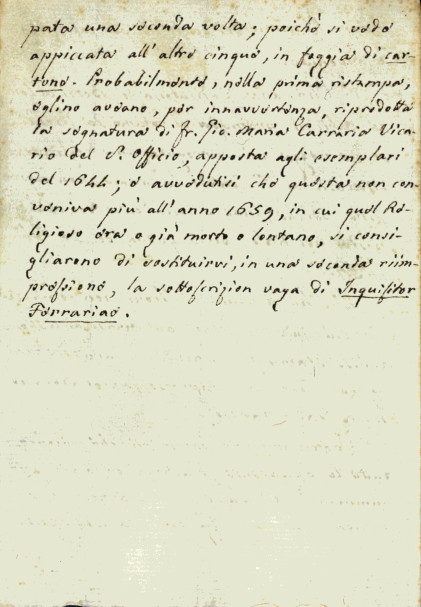 pata una seconda volta; poichè si vede
appiccata all' altre cinque, in foggia di car-
tone. Probabilmente, nella prima ristampa,
eglino aveano, per innavvertenza, riprodotta
la segnatura di Fr. Gio. Maria Carraria Vica-
rio del S. Officio, apposta agli esemplari
del 1644; e avvedutisi che questa non con-
veniva più all' anno 1659, in cui quel Re-
ligioso era o già morto o lontano, si consi-
gliarono di sostituirvi, in una seconda riim-
pressione, la sottoscrizion vaga di Inquisitor
Ferrariae.